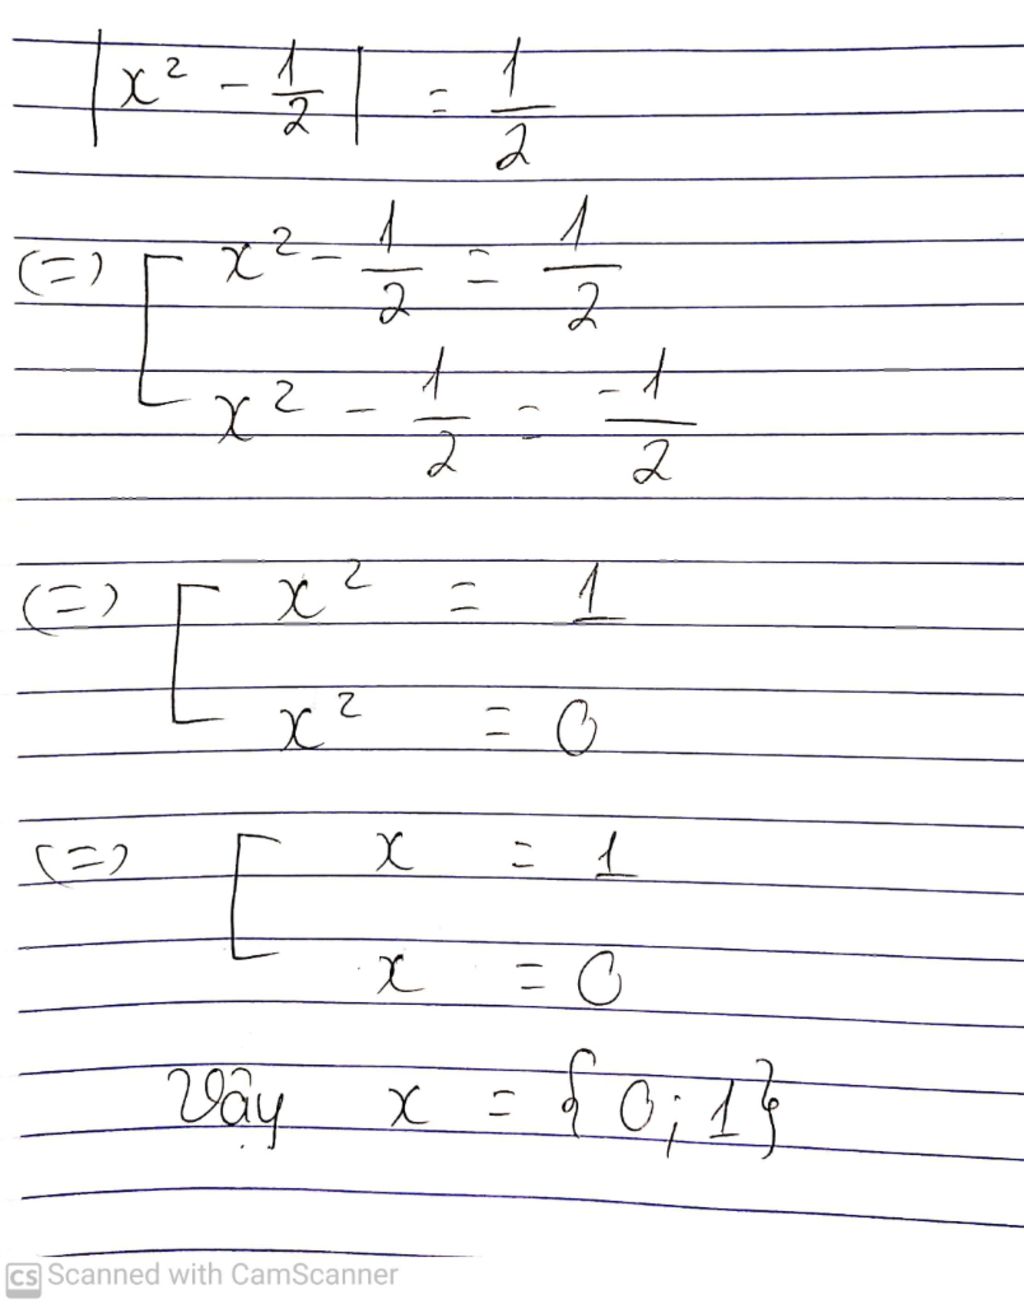 |x² - 1/2| = 1/2
(=) [ x² - 1/2 = 1/2
x² - 1/2 = -1/2
(=) [ x² = 1
x² = 0
(=) [ x = 1
x = 0
Vậy x = {0; 1}
CS Scanned with CamScanner